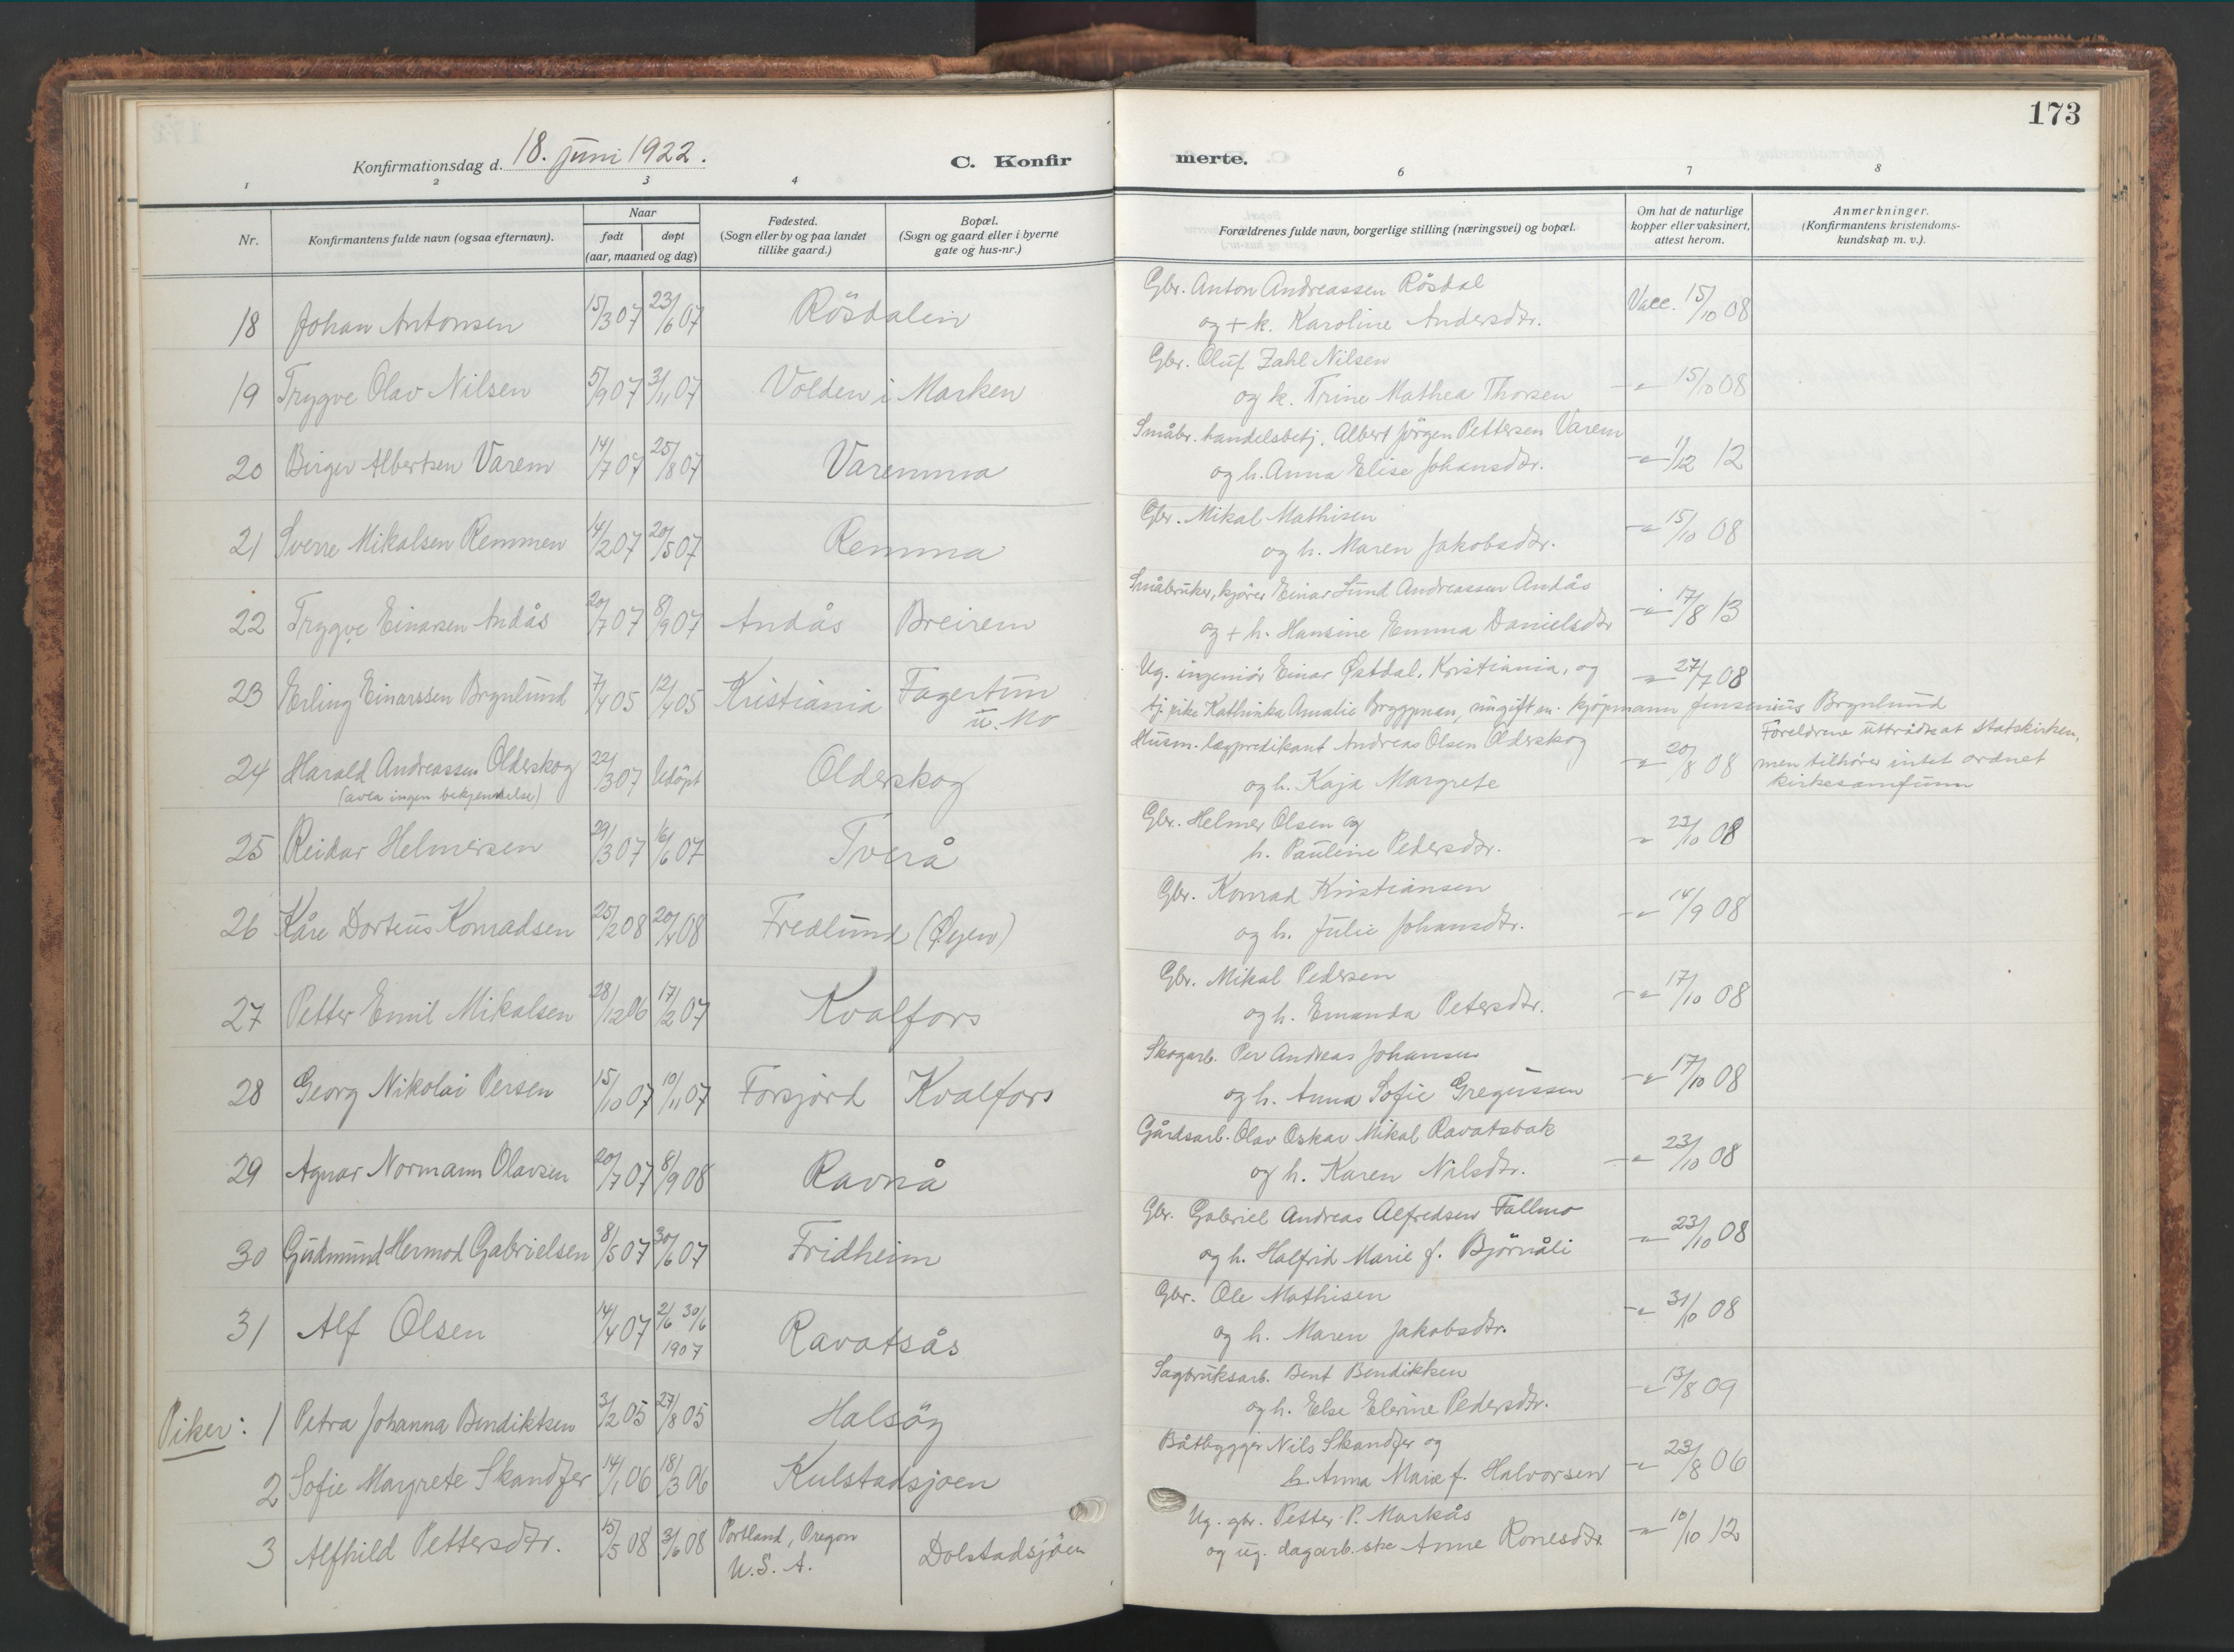 173
Konfirmationsdag d. 18. juni 1922.
C. Konfir
merte.
1 2 3 4 6 7 8
Nr.
Konfirmantens fulde navn (ogsaa efternavn).
Naar
født døpt
(aar, maaned og dag)
Fødested.
(Sogn eller by og paa landet
tillike gaard.)
Bopæl.
(Sogn og gaard eller i byerne
gate og hus-nr.)
Forældrenes fulde navn, borgerlige stilling (næringsvei) og bopæl.
Om hat de naturlige
kopper eller vaksinert,
attest herom.
Anmerkninger.
(Konfirmantens kristendoms-
kundskap m. v.).
18 Johan Antonsen 15/3 07 23/6 07 Rösdalen
Gbr. Anton Andreassen Rösdal
og + k. Karoline Andersdtr. Vacc. 15/10 08
19 Trygve Olav Nilsen 5/9 07 3/11 07 Volden i Marken
Gbr. Oluf Zahl Nilsen
og k. Trine Mathea Thorsen -"- 15/10 08
20 Birger Albertsen Varem 14/7 07 25/8 07 Varemma
Småbr. handelsbetj. Albert Jörgen Pettersen Varem
og h. Anna Elise Johansdtr. -"- 1/12 12
21 Sverre Mikalsen Remmen 14/2 07 20/5 07 Remma
Gbr. Mikal Mathisen
og h. Maren Jakobsdtr. -"- 15/10 08
22 Trygve Einarsen Andås 20/7 07 8/9 07 Andås Breirem
Småbruker, kjörer Einar Lund Andreassen Andås
og + h. Hansine Emma Danielsdtr -"- 17/8 13
23 Erling Einarssen Brynlund 7/4 05 12/4 05 Kristiania Fagertun
u. Mo
Ug. ingeniör Einar Östdal, Kristiania, og -"- 27/7 08
tj. pike Kathinka Amalie Bryggman, nu gift m. kjöpmann Jensenius Brynlund
24 Harald Andreassen Olderskog 22/3 07 Udöpt Olderskog
(avla ingen bekjennelse)
Husm. lægpredikant Andreas Olsen Olderskog
og h. Kaja Margrete -"- 20/8 08
Foreldrene uttrådt at statskirken,
men tilhörer intet ordnet
kirkesamfunn
25 Reidar Helmersen 29/3 07 16/6 07 Tverå
Gbr. Helmer Olsen og
h. Pauline Pedersdtr. -"- 23/10 08
26 Kåre Dorteus Konradsen 25/2 08 20/4 08 Fredlund (Öyen)
Gbr. Konrad Kristiansen
og h. Julie Johansdtr. -"- 14/9 08
27 Petter Emil Mikalsen 28/12 06 17/2 07 Kvalfors
Gbr. Mikal Pedersen
og h. Emanda Petersdtr. -"- 17/10 08
28 Georg Nikolai Persen 15/10 07 10/11 07 Forsjord Kvalfors
Skogarb. Per Andreas Johansen
og h. Anna Sofie Gregussen -"- 17/10 08
29 Agnar Normann Olavsen 20/7 07 8/9 08 Ravnå
Gårdsarb. Olav Oskar Mikal Ravatsbak
og h. Karen Nilsdtr. -"- 23/10 08
30 Gudmund Hermod Gabrielsen 8/5 07 30/6 07 Fridheim
Gbr. Gabriel Andreas Alfredsen Fallmo
og h. Halfrid Marie f. Björnåli -"- 23/10 08
31 Alf Olsen 14/4 07 2/6 30/6 1907 Ravatsås
Gbr. Ole Mathisen
og h. Maren Jakobsdtr. -"- 31/10 08
Piker: 1 Petra Johanna Bendiktsen 3/2 05 27/8 05 Halsöy
Sagbruksarb. Bent Bendiktsen
og h. Else Elerine Pedersdtr. -"- 13/8 09
2 Sofie Margrete Skandfer 14/1 06 18/3 06 Kulstadsjoen
Båtbygger Nils Skandfer og
h. Anna Marie f. Halvorsen -"- 23/8 06
3 Alfhild Pettersdtr. 15/5 08 3/6 08 Portland, Oregon
U.S.A. Dolstadsjöen
Ug. gbr. Petter P. Markås
og ug. dagarb.ske Anne Ronesdtr. -"- 10/10 12